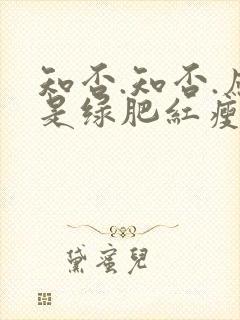 知否.知否.应
是绿肥红瘦
黛蜜儿